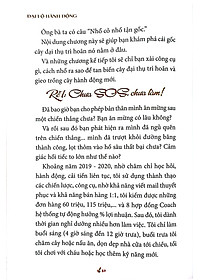 ĐẠI LỘ HÀNH ĐỘNG
Ông bà ta có câu "Nhổ cỏ nhổ tận gốc".
Nội dung chương này sẽ giúp bạn khám phá cái gốc
cây đại thụ trì hoãn nó nằm ở đâu.
Và những chương kế tiếp tôi sẽ chỉ bạn xài công cụ
gì, cách nhổ ra sao để tan biến cây đại thụ trì hoãn và
gieo trồng cây hành động mới.
Rồi! Chưa SOS chưa làm!
Đã bao giờ bạn cho phép bản thân mình ăn mừng sau
một chiến thắng chưa? Bạn ăn mừng có lâu không?
Và rồi sau đó bạn phát hiện ra mình đã ngủ quên
trên chiến thắng... mình bị trượt dài trong chiến thắng
thành công, lọt thỏm vào hố sâu thất bại chưa? Cảm
giác hối tiếc to lớn như thế nào?
Khoảng năm 2019 - 2020, nhờ chăm chỉ học hỏi,
hành động, cải tiến liên tục, tôi sử dụng thành thạo
các chiến lược, công cụ, nhờ khả năng viết mail thuyết
phục và khả năng bán hàng 1:1, tôi kiếm được những
đơn hàng 60 triệu, 115 triệu,... và 8 hợp đồng Coach
hệ thống tự động hưởng % lợi nhuận. Sau đó, tôi dành
thời gian nghỉ dưỡng nhiều hơn làm việc. Tôi chỉ làm
buổi sáng (4 giờ sáng đến 12 giờ trưa), buổi trưa tôi
chăm cây hoặc nấu ăn, dọn dẹp nhà cửa tới chiều, tối
tôi chơi với cháu hoặc học thêm kỹ năng mới.